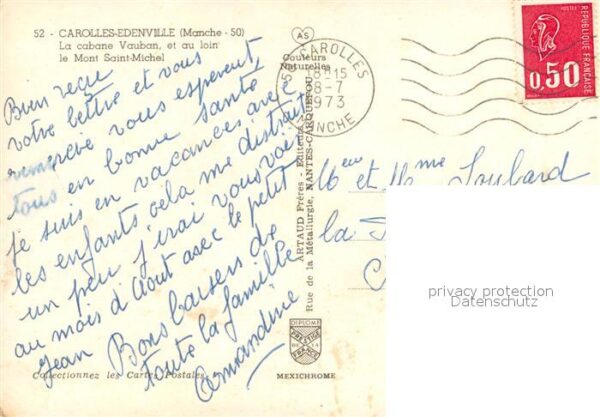 52 - CAROLLES-EDENVILLE (Manche - 50)
La cabane Vauban, et au loin
le Mont Saint-Michel
AS
Couleurs
Naturelles
Bien reçu
votre lettre et vous
remercie vous esperent
tous en bonne santé
je suis en vacances avec
les enfants cela me distrait
un peu j'irai vous voir
au mois d'Aout avec le petit
Jean Bons baisers de
toute la famille
Amandine
Collectionnez les Cartes Postales
ARTAUD Frères - Editeurs
Rue de la Métallurgie, NANTES-CARQUEFOU
DIPLOME
PRESTIGE
DE LA
FRANCE
MEXICHROME
50 CAROLLES
18H15
8-7
1973
MANCHE
POSTES
REPUBLIQUE FRANÇAISE
0,50
et Mme Loubard
la
privacy protection
Datenschutz